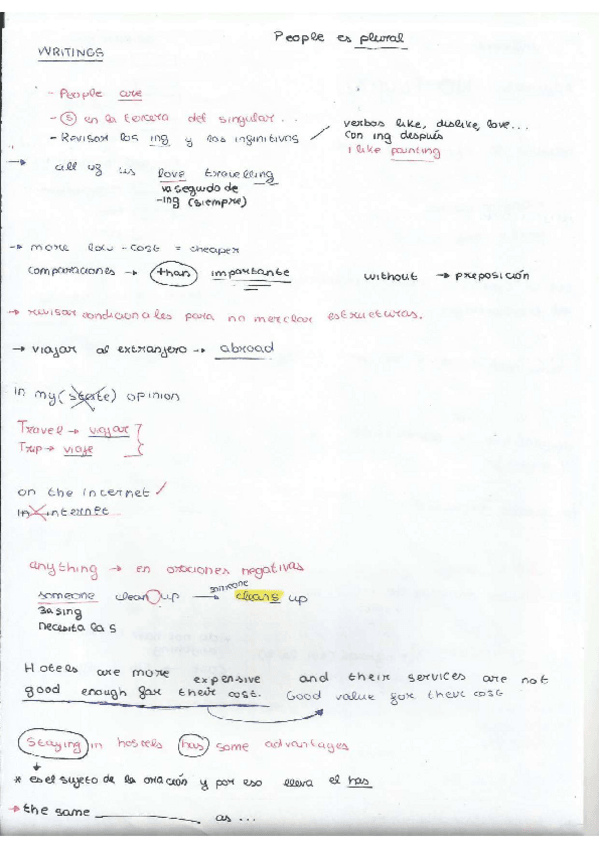 People es plural
WRITINGS
- People are
- (S) en la tercera del singular...
- Revisar los ing y los infinitivos
verbos like, dislike, love...
con ing después
I like painting
→ all of us love travelling
va seguido de
-ing (siempre)
→ more low-cost = cheaper
comparaciones → than importante
without → preposición
→ revisar condicionales para no mezclar estructuras.
→ viajar al extranjero → abroad
in my (state) opinion
Travel → viajar
Trip → viaje
on the internet ✓
in internet
anything → en oraciones negativas
someone clean up → someone cleans up
3a sing
necesita la s
Hotels are more expensive and their services are not
good enough for their cost. Good value for their cost
Staying in hostels has some advantages
* es el sujeto de la oración y por eso lleva el has
→ the same ________ as ...